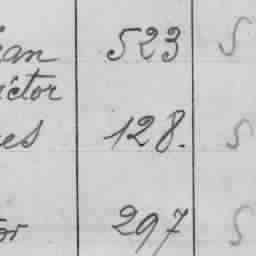 ean 523 S
ictor
es 128. S
or 297 S